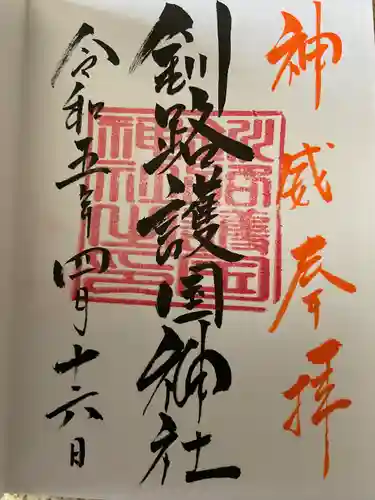 神威奉拝
釧路護国神社
令和五年四月十六日
釧路護國神社之印